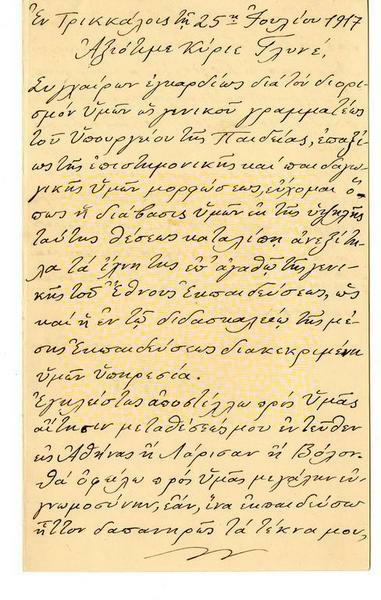 Ἐν Τρικκάλοις τῇ 25ῃ Ἰουλίου 1917
Ἀξιότιμε Κύριε Γληνέ,
Συγχαίρων ἐγκαρδίως διὰ τὸν διορι-
σμὸν Ὑμῶν ὡς γενικοῦ γραμματέως
τοῦ Ὑπουργείου τῆς Παιδείας, ἐπαξί-
ως τῆς ἐπιστημονικῆς καὶ παιδαγω-
γικῆς Ὑμῶν μορφώσεως, εὔχομαι ὅ-
πως ἡ διάβασις Ὑμῶν ἐκ τῆς ὑψηλῆς
ταύτης θέσεως καταλίπῃ ἀνεξίτη-
λα τὰ ἴχνη της ἐπ' ἀγαθῷ τῆς γενι-
κῆς τοῦ Ἔθνους Ἐκπαιδεύσεως, ὡς
καὶ ἡ ἐν τῷ διδασκαλείῳ τῆς μέ-
σης Ἐκπαιδεύσεως διακεκριμένη
Ὑμῶν Ὑπηρεσία.
Ἐγκλείστως ἀποστέλλω πρὸς Ὑμᾶς
αἴτησιν μεταθέσεώς μου ἐντεῦθεν
εἰς Ἀθήνας ἢ Λάρισαν ἢ Βόλον.
Θὰ ὀφείλω πρὸς Ὑμᾶς μεγάλην εὐ-
γνωμοσύνην, ἐάν, ἵνα ἐκπαιδεύσω
ἧττον δαπανηρῶς τὰ τέκνα μου,